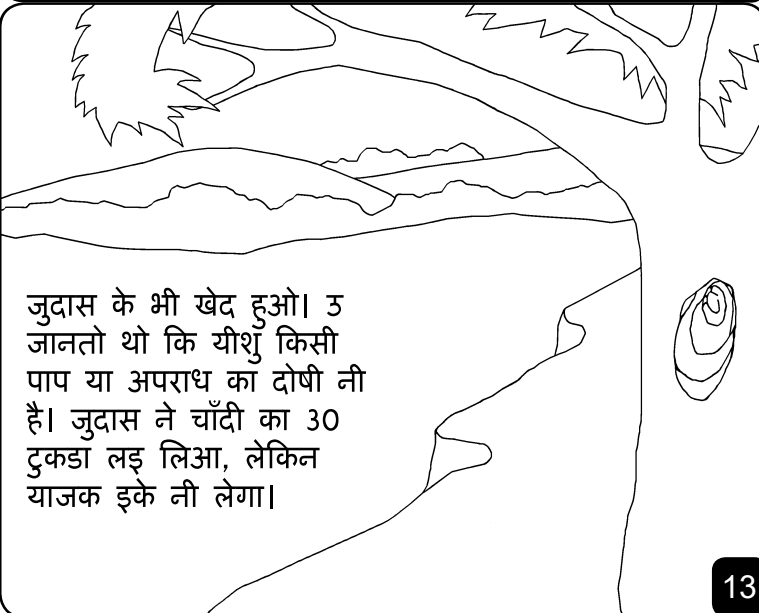 जुदास के भी खेद हुओ। उ
जानतो थो कि यीशु किसी
पाप या अपराध का दोषी नी
है। जुदास ने चाँदी का 30
टुकडा लइ लिआ, लेकिन
याजक इके नी लेगा।
13